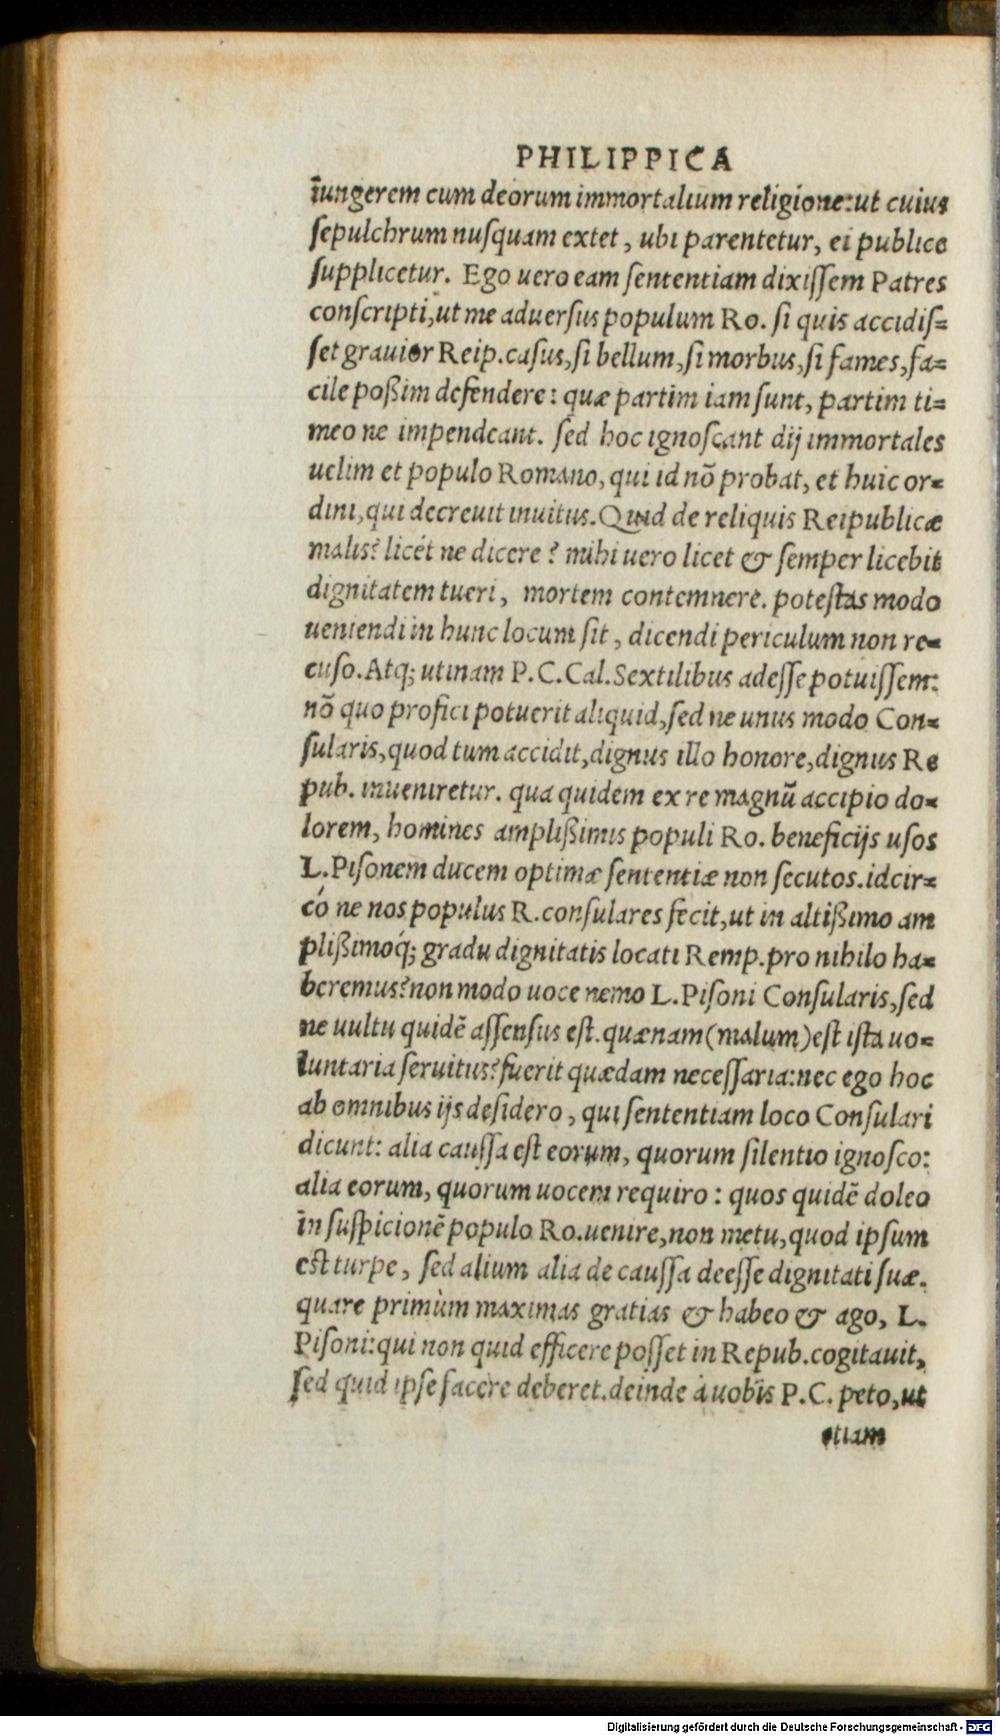 PHILIPPICA
iungerem cum deorum immortalium religione: ut cuius
sepulchrum nusquam extet, ubi parentetur, ei publice
supplicetur. Ego uero eam sententiam dixissem Patres
conscripti, ut me aduersus populum Ro. si quis accidis=
set grauior Reip. casus, si bellum, si morbus, si fames, fa=
cile poßim defendere: quæ partim iam sunt, partim ti=
meo ne impendeant. sed hoc ignoscant dij immortales
uelim et populo Romano, qui id nō probat, et huic or=
dini, qui decreuit inuitus. Quid de reliquis Reipublicæ
malis? licét ne dicere? mihi uero licet & semper licebit
dignitatem tueri, mortem contemnere. potestas modo
ueniendi in hunc locum sit, dicendi periculum non re=
cuso. Atq; utinam P. C. Cal. Sextilibus adesse potuissem:
nō quo profici potuerit aliquid, sed ne unus modo Con=
sularis, quod tum accidit, dignus illo honore, dignus Re
pub. inueniretur. qua quidem ex re magnū accipio do=
lorem, homines amplißimis populi Ro. beneficijs usos
L. Pisonem ducem optimæ sententiæ non secutos. idcir=
có ne nos populus R. consulares fecit, ut in altißimo am
plißimoq́; gradu dignitatis locati Remp. pro nihilo ha=
beremus? non modo uoce nemo L. Pisoni Consularis, sed
ne uultu quidē assensus est. quænam (malum) est ista uo=
luntaria seruitus? fuerit quædam necessaria: nec ego hoc
ab omnibus ijs desidero, qui sententiam loco Consulari
dicunt: alia caussa est eorum, quorum silentio ignosco:
alia eorum, quorum uocem requiro: quos quidē doleo
in suspicionē populo Ro. uenire, non metu, quod ipsum
est turpe, sed alium alia de caussa deesse dignitati suæ.
quare primùm maximas gratias & habeo & ago, L.
Pisoni: qui non quid efficere posset in Repub. cogitauit,
sed quid ipse facere deberet. deinde à uobis P. C. peto, ut
etiam
Digitalisierung gefördert durch die Deutsche Forschungsgemeinschaft - DFG